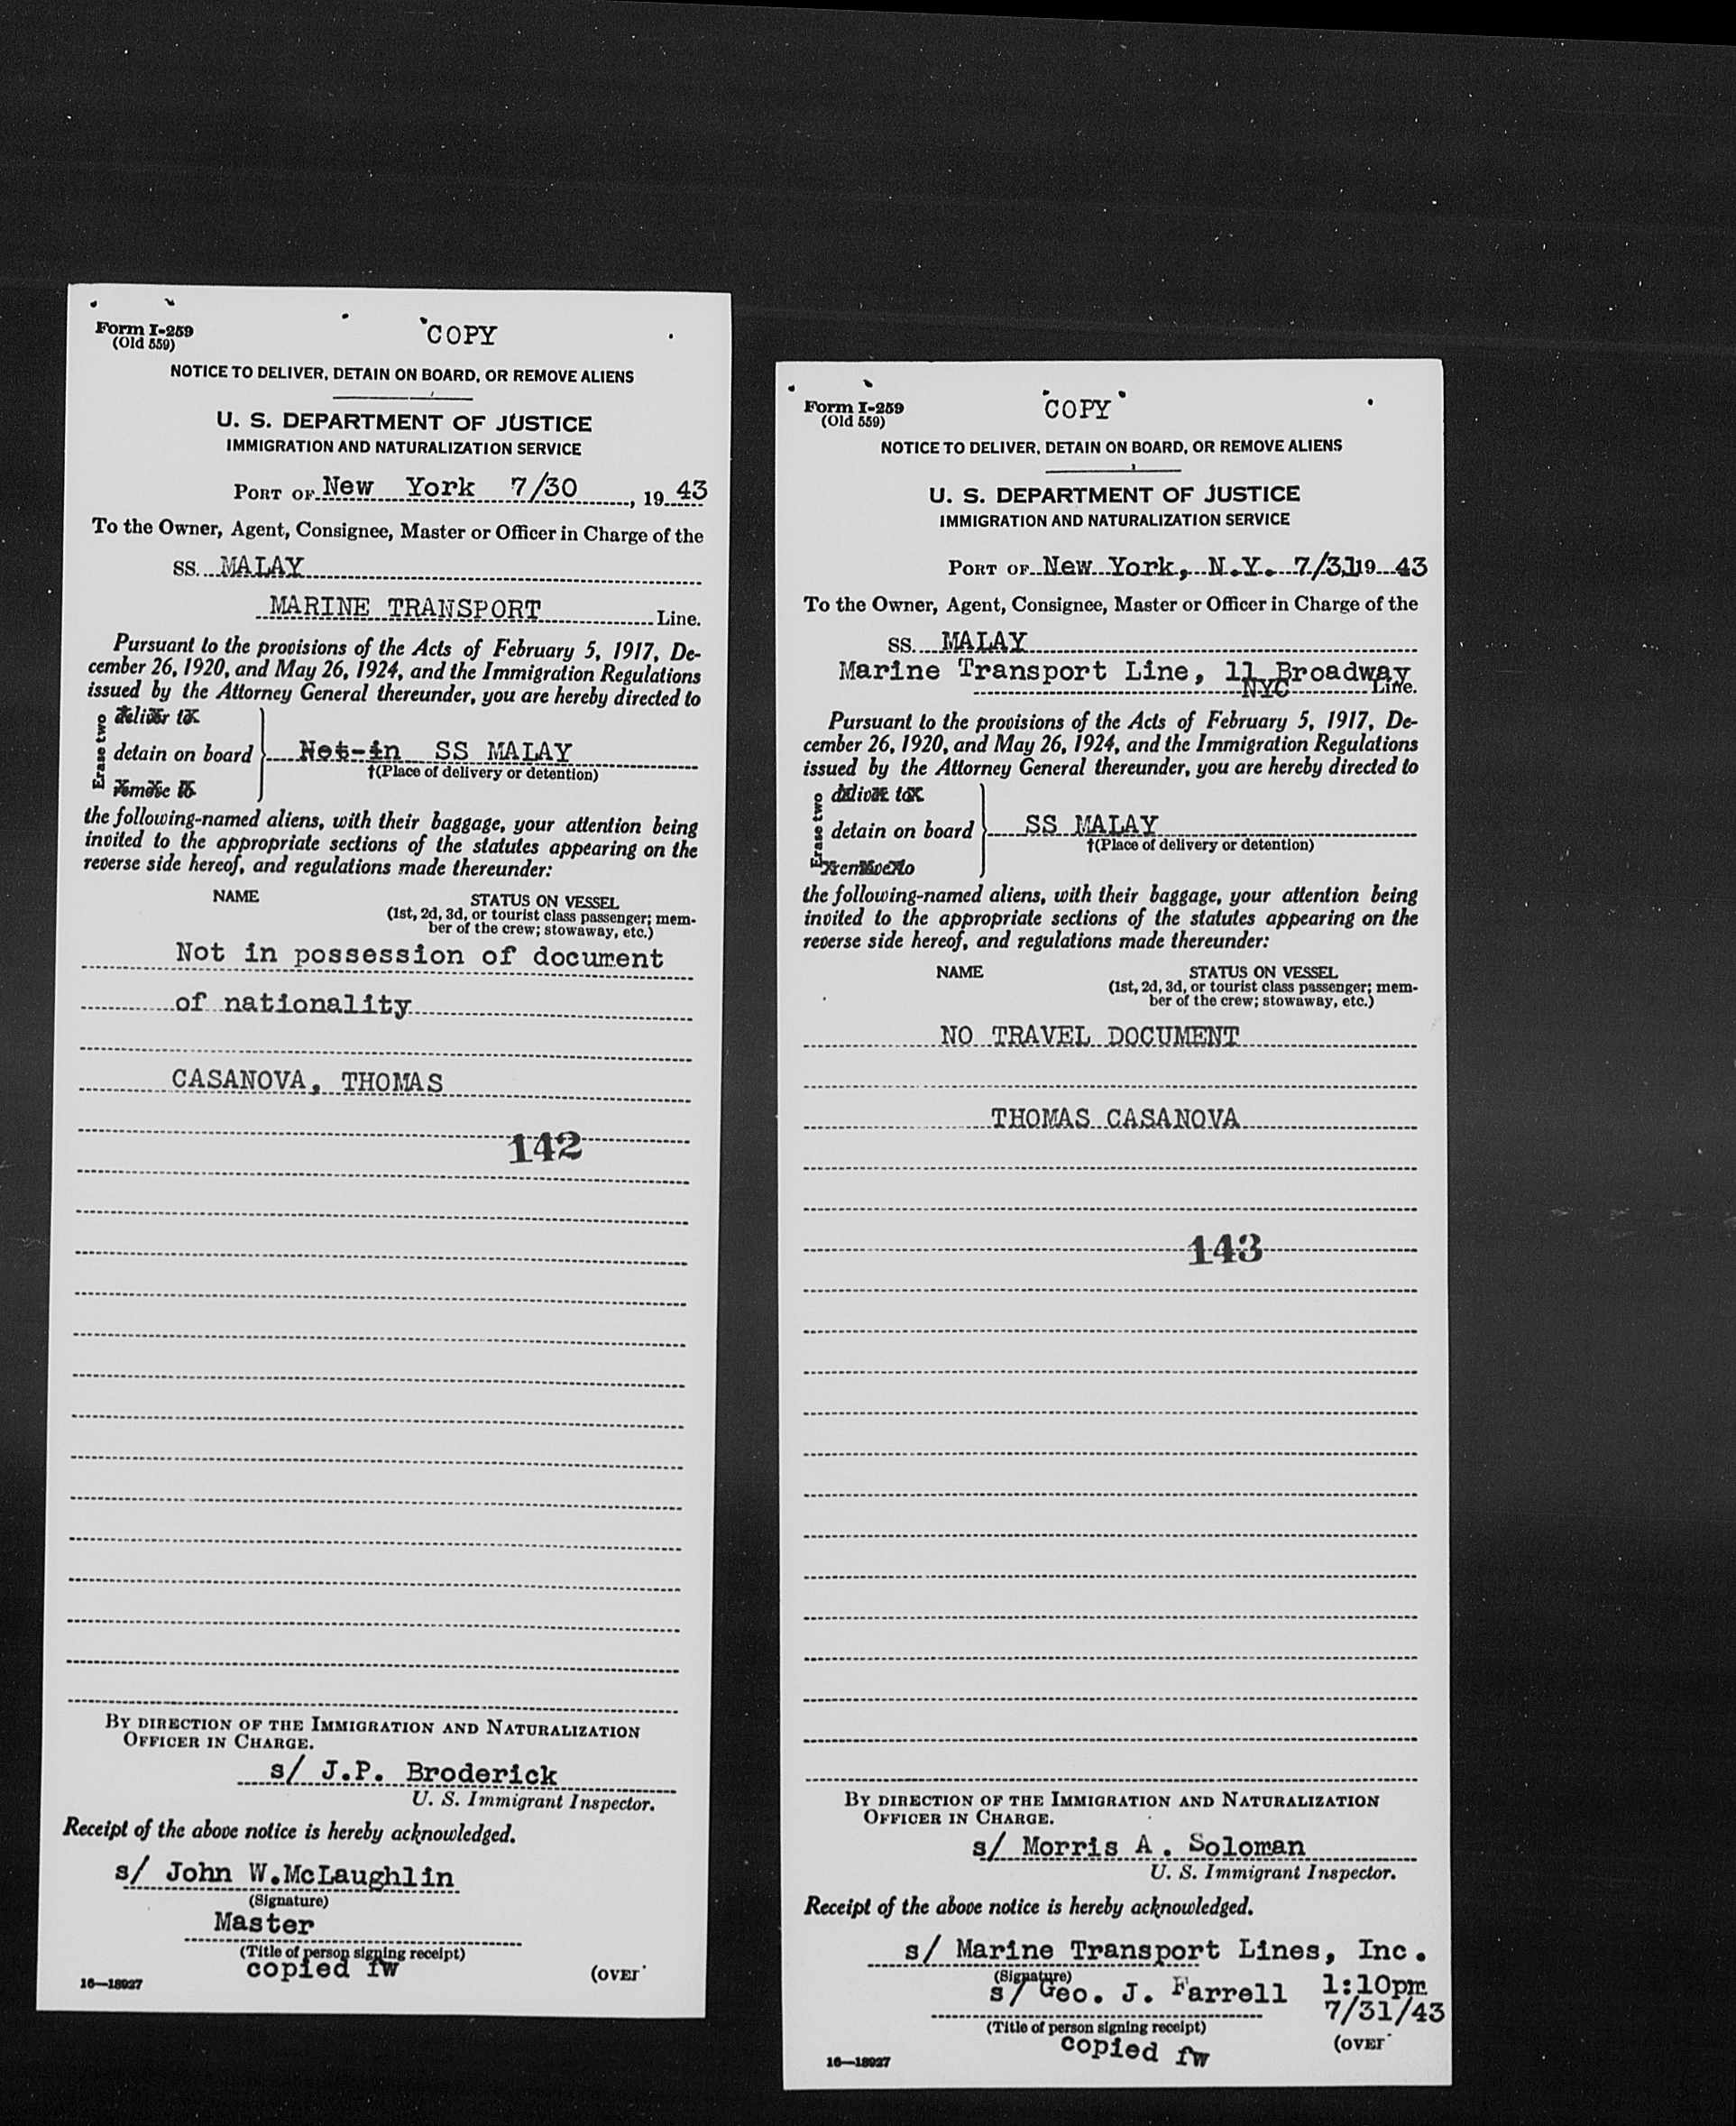 Form I-259
(Old 559)
COPY
NOTICE TO DELIVER, DETAIN ON BOARD, OR REMOVE ALIENS
U. S. DEPARTMENT OF JUSTICE
IMMIGRATION AND NATURALIZATION SERVICE
PORT OF New York 7/30, 19 43
To the Owner, Agent, Consignee, Master or Officer in Charge of the
SS. MALAY
MARINE TRANSPORT Line.
Pursuant to the provisions of the Acts of February 5, 1917, De-
cember 26, 1920, and May 26, 1924, and the Immigration Regulations
issued by the Attorney General thereunder, you are hereby directed to
Erase two
deliver to
detain on board Not in SS MALAY
†(Place of delivery or detention)
remove to
the following-named aliens, with their baggage, your attention being
invited to the appropriate sections of the statutes appearing on the
reverse side hereof, and regulations made thereunder:
NAME STATUS ON VESSEL
(1st, 2d, 3d, or tourist class passenger; mem-
ber of the crew; stowaway, etc.)
Not in possession of document
of nationality
CASANOVA, THOMAS
142
BY DIRECTION OF THE IMMIGRATION AND NATURALIZATION
OFFICER IN CHARGE.
s/ J.P. Broderick
U. S. Immigrant Inspector.
Receipt of the above notice is hereby acknowledged.
s/ John W.McLaughlin
(Signature)
Master
(Title of person signing receipt)
copied fw
16—18927 (OVER
Form I-259
(Old 559)
COPY
NOTICE TO DELIVER, DETAIN ON BOARD, OR REMOVE ALIENS
U. S. DEPARTMENT OF JUSTICE
IMMIGRATION AND NATURALIZATION SERVICE
PORT OF New York, N.Y. 7/31 19 43
To the Owner, Agent, Consignee, Master or Officer in Charge of the
SS. MALAY
Marine Transport Line, 11 Broadway
NYC Line.
Pursuant to the provisions of the Acts of February 5, 1917, De-
cember 26, 1920, and May 26, 1924, and the Immigration Regulations
issued by the Attorney General thereunder, you are hereby directed to
Erase two
deliver to
detain on board SS MALAY
†(Place of delivery or detention)
remove to
the following-named aliens, with their baggage, your attention being
invited to the appropriate sections of the statutes appearing on the
reverse side hereof, and regulations made thereunder:
NAME STATUS ON VESSEL
(1st, 2d, 3d, or tourist class passenger; mem-
ber of the crew; stowaway, etc.)
NO TRAVEL DOCUMENT
THOMAS CASANOVA
143
BY DIRECTION OF THE IMMIGRATION AND NATURALIZATION
OFFICER IN CHARGE.
s/ Morris A. Soloman
U. S. Immigrant Inspector.
Receipt of the above notice is hereby acknowledged.
s/ Marine Transport Lines, Inc.
(Signature)
s/ Geo. J. Farrell 1:10pm
7/31/43
(Title of person signing receipt)
copied fw
16—18927 (OVER